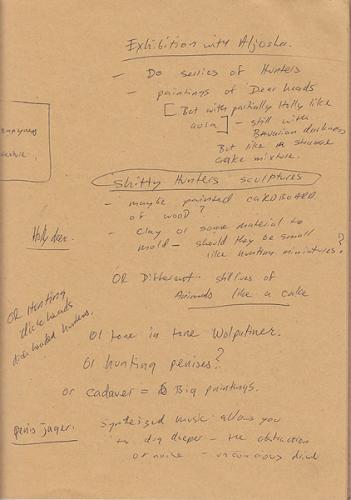 Exhibition with Aljosha.
- Do series of Hunters
- paintings of Dear heads
[But with partially Holly like
aura] - still with
Bavarian darkness
But like a strange
cake mixture.
Shitty Hunters sculptures
- maybe painted CARDBOARD
of wood?
- clay or some material to
mold - should they be small
like hunting miniatures?
Holly deer.
OR Different still lives of
Animals like a cake
OR Hunting
dickheads
dick headed hunters.
Or tone in tone Wolpatiner.
Or hunting penises?
or cadaver = Big paintings.
penis jager.
Synthesized music allows you
to dig deeper - the abstraction
or noise - unconcious